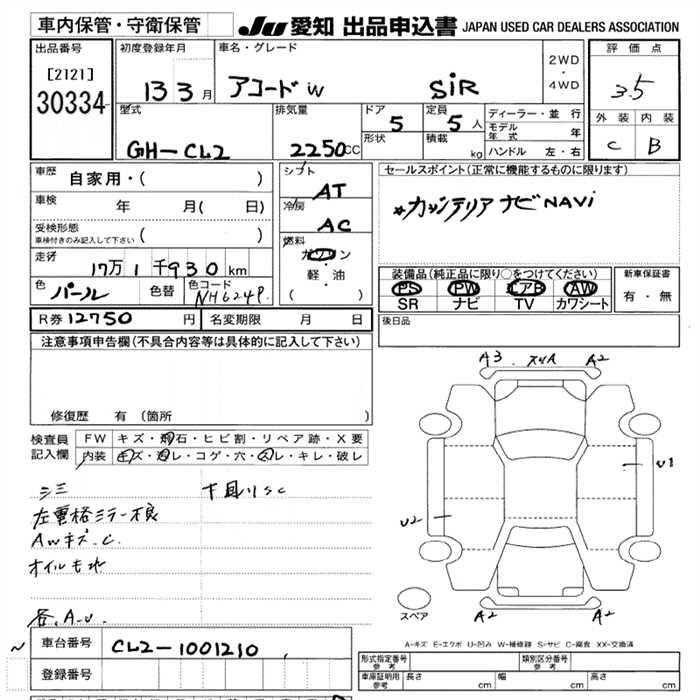 車内保管・守衛保管
JU 愛知 出品申込書 JAPAN USED CAR DEALERS ASSOCIATION
出品番号
[2121]
30334
初度登録年月
13 3月
車名・グレード
アコード W SiR
2WD
・
4WD
評価点
3.5
外装 内装
C B
型式
GH-CL2
排気量
2250cc
ドア
5
形状
定員
5人
積載 kg
ディーラー・並行
モデル年式 年
ハンドル 左・右
車歴 自家用・( )
車検 年 月( 日)
受検形態
車検付きのみ記入して下さい ( )
走行
17万1千930km
色 パール 色替 色コード NH624P
シフト
AT
冷房
AC
燃料
ガソリン
・
軽・油
( )
セールスポイント(正常に機能するものに限ります)
ナビ NAVi
装備品(純正品に限り○をつけてください)
PS PW エアB AW
SR ナビ TV カワシート
新車保証書
有・無
R券 12750 円 名変期限 月 日
後日品
注意事項申告欄(不具合内容等は具体的に記入して下さい)
修復歴 有(箇所 )
検査員
記入欄
FW キズ・飛石・ヒビ割・リペア跡・X要
内装 キズ・汚レ・コゲ・穴・スレ・キレ・破レ
A3 スリA A2
U1
U2
A2 A2
スペア
左電格ミラー不良
AWキズ.C.
オイルもれ
各.A.U.
A-キズ E-エクボ U-凹み W-補修跡 S-サビ C-腐食 XX-交換済
車台番号 CL2-1001210
登録番号
形式指定番号
参考
類別区分番号
参考
車庫証明用
参考
長さ cm 幅 cm 高さ cm